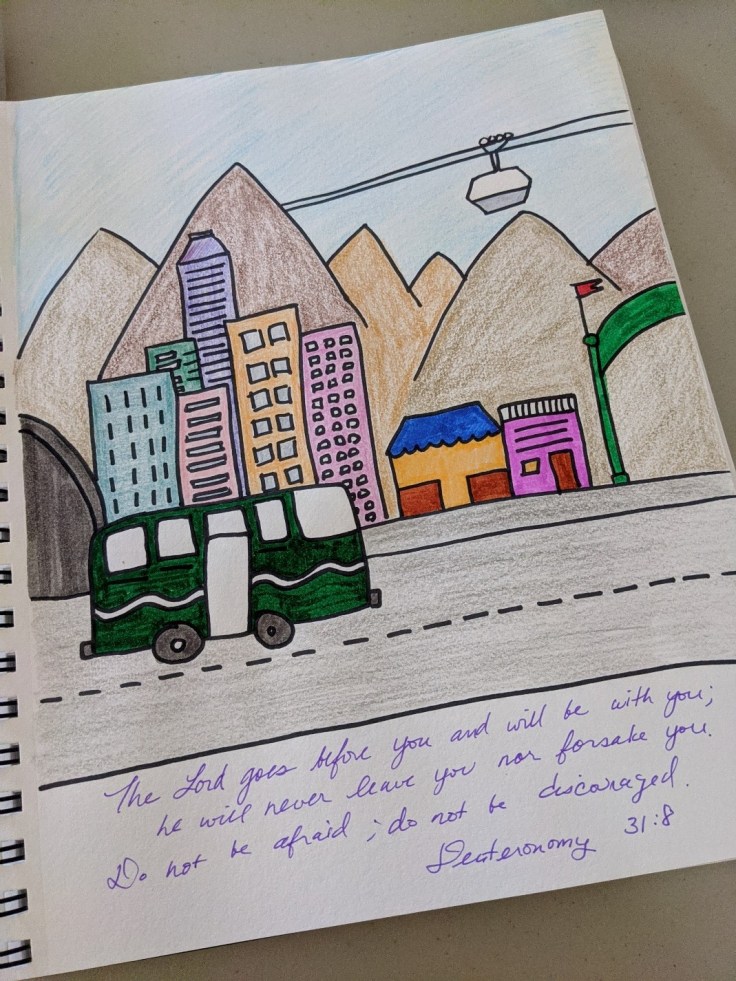 The Lord goes before you and will be with you;
he will never leave you nor forsake you.
Do not be afraid; do not be discouraged.
Deuteronomy 31:8